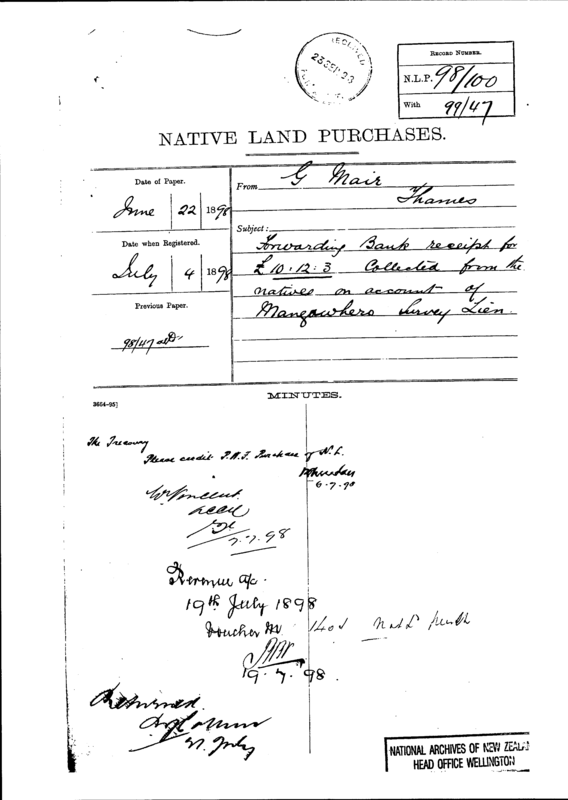 RECEIVED
23 SEP
RECORD NUMBER.
N.L.P. 98/100
With 99/47
NATIVE LAND PURCHASES.
Date of Paper.
June 22 1898
Date when Registered.
July 4 1898
Previous Paper.
98/47
From G Mair
Thames
Subject:
Forwarding Bank receipt for
£10:12:3 Collected from the
natives on account of
Mangawhero Survey Lien.
3664-95]
MINUTES.
The Treasury
Please credit P.W.F. Purchase of N.L.
6.7.98
7.7.98
Revenue a/c.
19th July 1898
Voucher No
19.7.98.
Returned
21 July
NATIONAL ARCHIVES OF NEW ZEALAN
HEAD OFFICE WELLINGTON